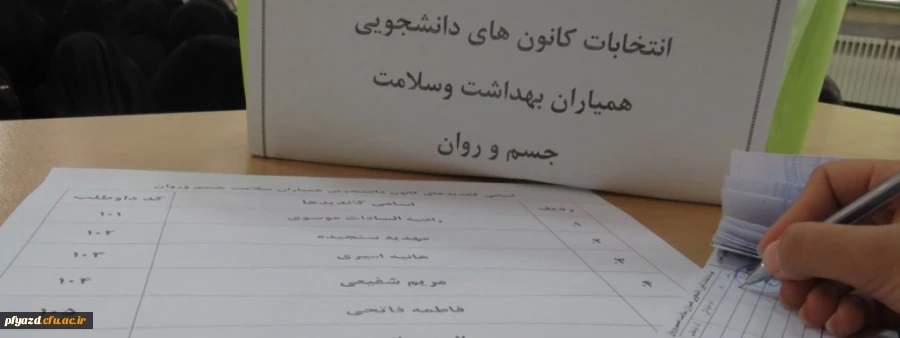 انتخابات کانون های دانشجویی
همیاران بهداشت وسلامت
جسم و روان
اسامی کاندیدهای کانون دانشجویی همیاران سلامت جسم و روان
ردیف اسامی کاندیدها کد داوطلب
۱ راضیه السادات موسوی ۱۰۱
۲ مهدیه سنجیده ۱۰۲
۳ هانیه امیری ۱۰۳
۴ مریم شفیعی ۱۰۴
فاطمه فاتحی
pfyazd.cfu.ac.ir